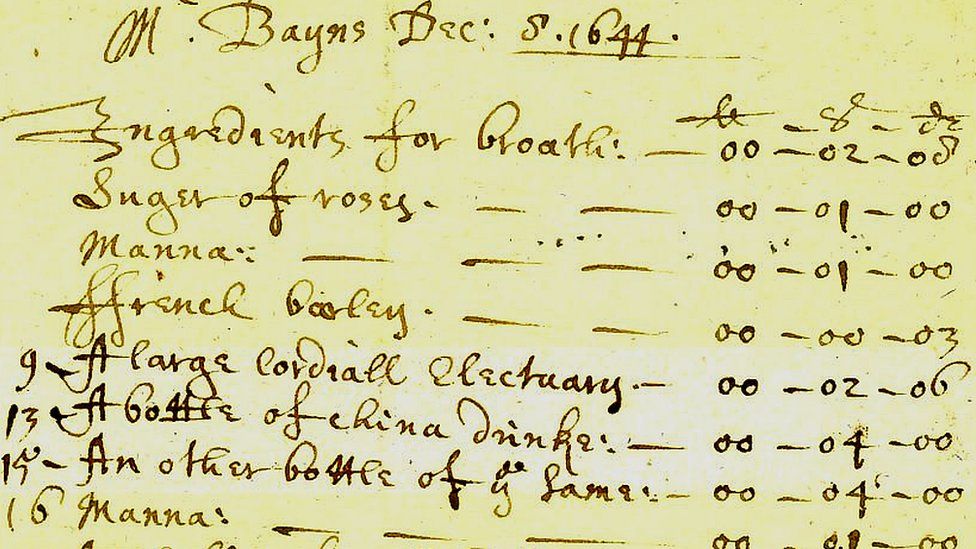 Mr. Bayns Dec: 8. 1644.
li - S - dr
Ingredients for broath: — 00 - 02 - 08
Suger of roses. — — 00 - 01 - 00
Manna: — — — 00 - 01 - 00
ffrench barley. — — 00 - 00 - 03
9 - A large Cordiall Electuary. - 00 - 02 - 06
13 - A bottle of China drinke: — 00 - 04 - 00
15 - An other bottle of ye same: - 00 - 04 - 00
16 Manna: — — — 00 - 01 - 00